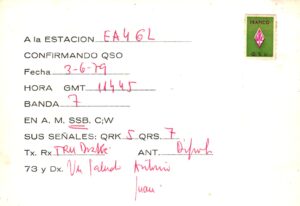 A la ESTACION EA4GL
FRANCO
CONFIRMANDO QSO
Fecha 3-6-79
HORA GMT 11445
BANDA 7
EN A. M. SSB. C;W
SUS SEÑALES: QRK 5 QRS. 7
Tx. Rx TRU ANT. Dipolo
73 y Dx. Un Saludo Antonio
Juan